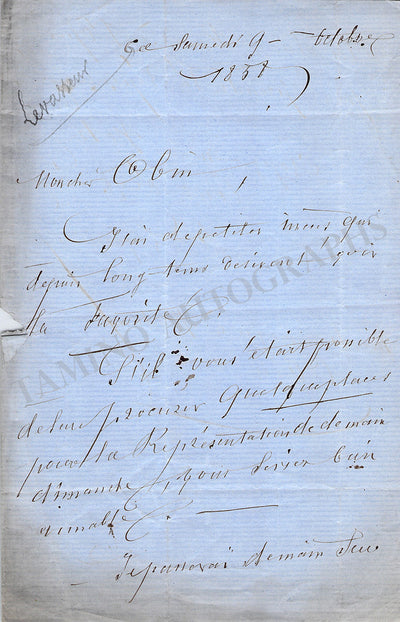 Ce Samedi 9 - Octobre
1858
Levasseur
Mon cher Obin,
J'ai de petites nieces qui
depuis long-tems desirent voir
la Favorite.
S'il vous était possible
de leur procurer quelques places
pour la Représentation de demain
dimanche, vous seriez bien
aimable.
Je passerai demain
TAMINO AUTOGRAPHS